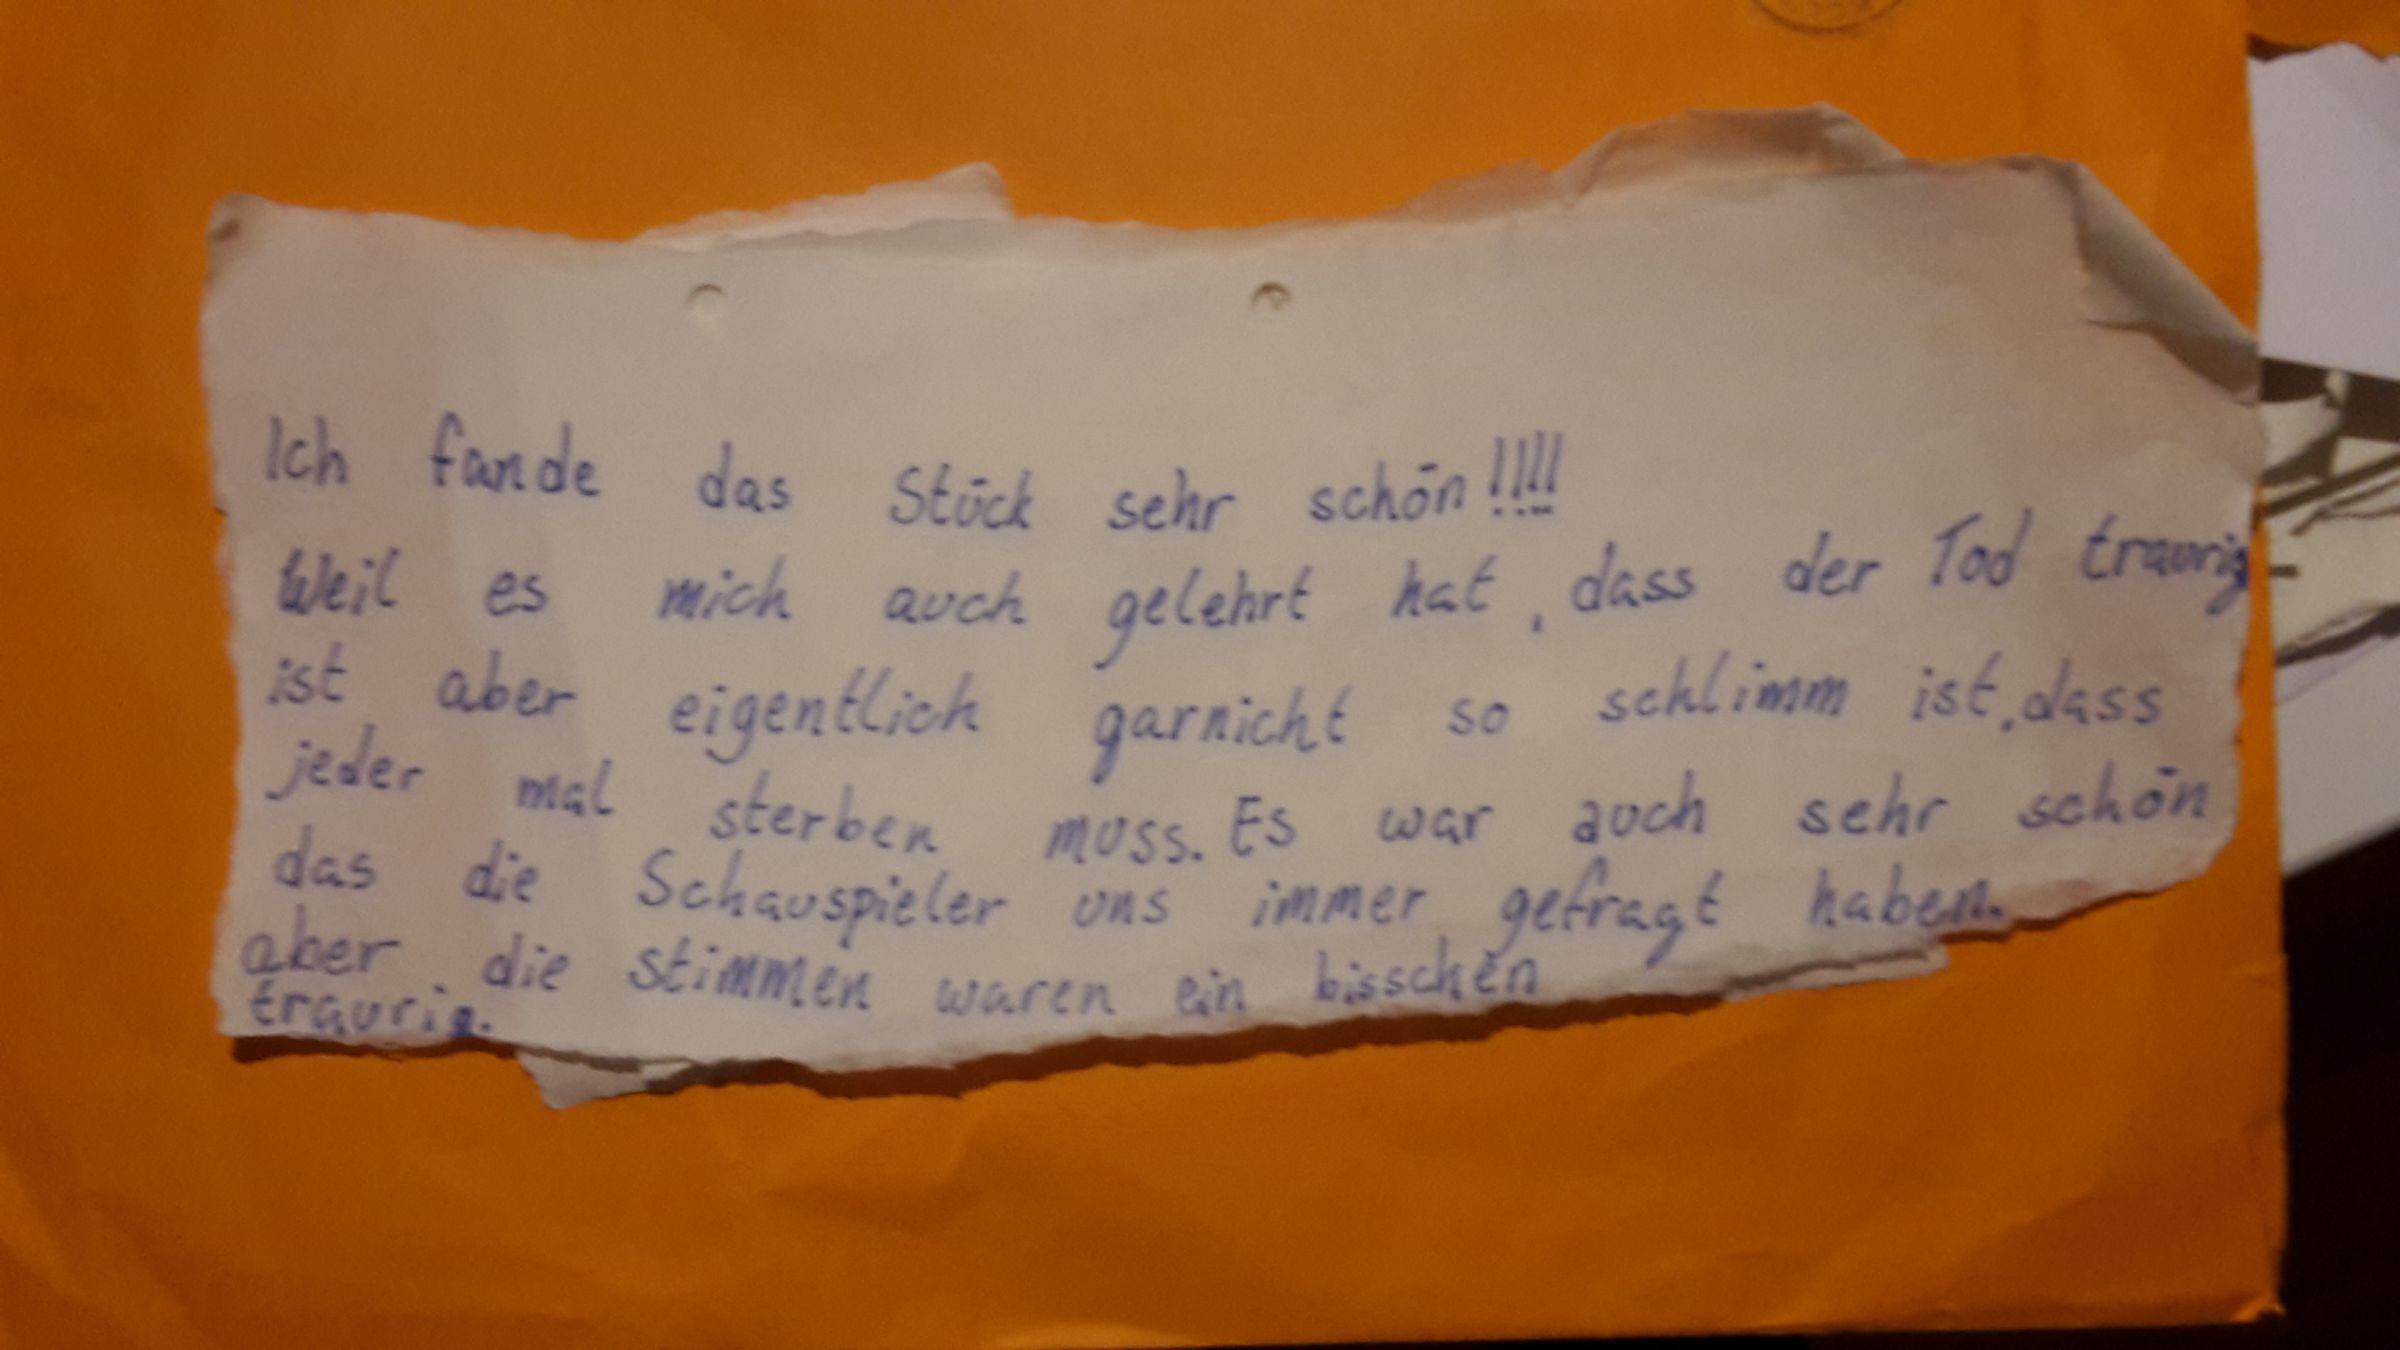 Ich fande das Stück sehr schön!!!!
Weil es mich auch gelehrt hat, dass der Tod traurig
ist aber eigentlich garnicht so schlimm ist, dass
jeder mal sterben muss. Es war auch sehr schön
das die Schauspieler uns immer gefragt haben.
aber die stimmen waren ein bisschen
traurig.